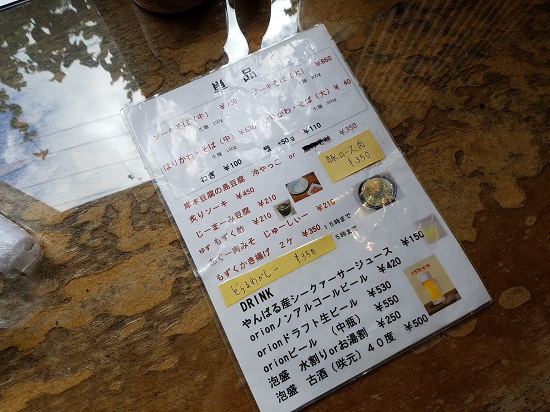 単品
ソーキそば(中) ¥750 ソーキそば(大) ¥860
ほりかわ そば(中) ¥
ねぎ ¥100 麺+50g ¥110
岸本豆腐の島豆腐 冷やっこ or ¥350
豚ロース肉
¥350
炙りソーキ ¥450
じーまーみ豆腐 ¥210
ゆず もずく酢 ¥210
あぐー肉みそ じゅーしぃー ¥210
もずくかき揚げ 2ケ ¥350 15時まで
¥350
DRINK
やんばる産シークァーサージュース ¥150
orionノンアルコールビール ¥420
orionドラフト生ビール ¥530
orionビール (中瓶) ¥550
泡盛 水割りorお湯割 ¥250
泡盛 古酒(咲元) 40度 ¥500